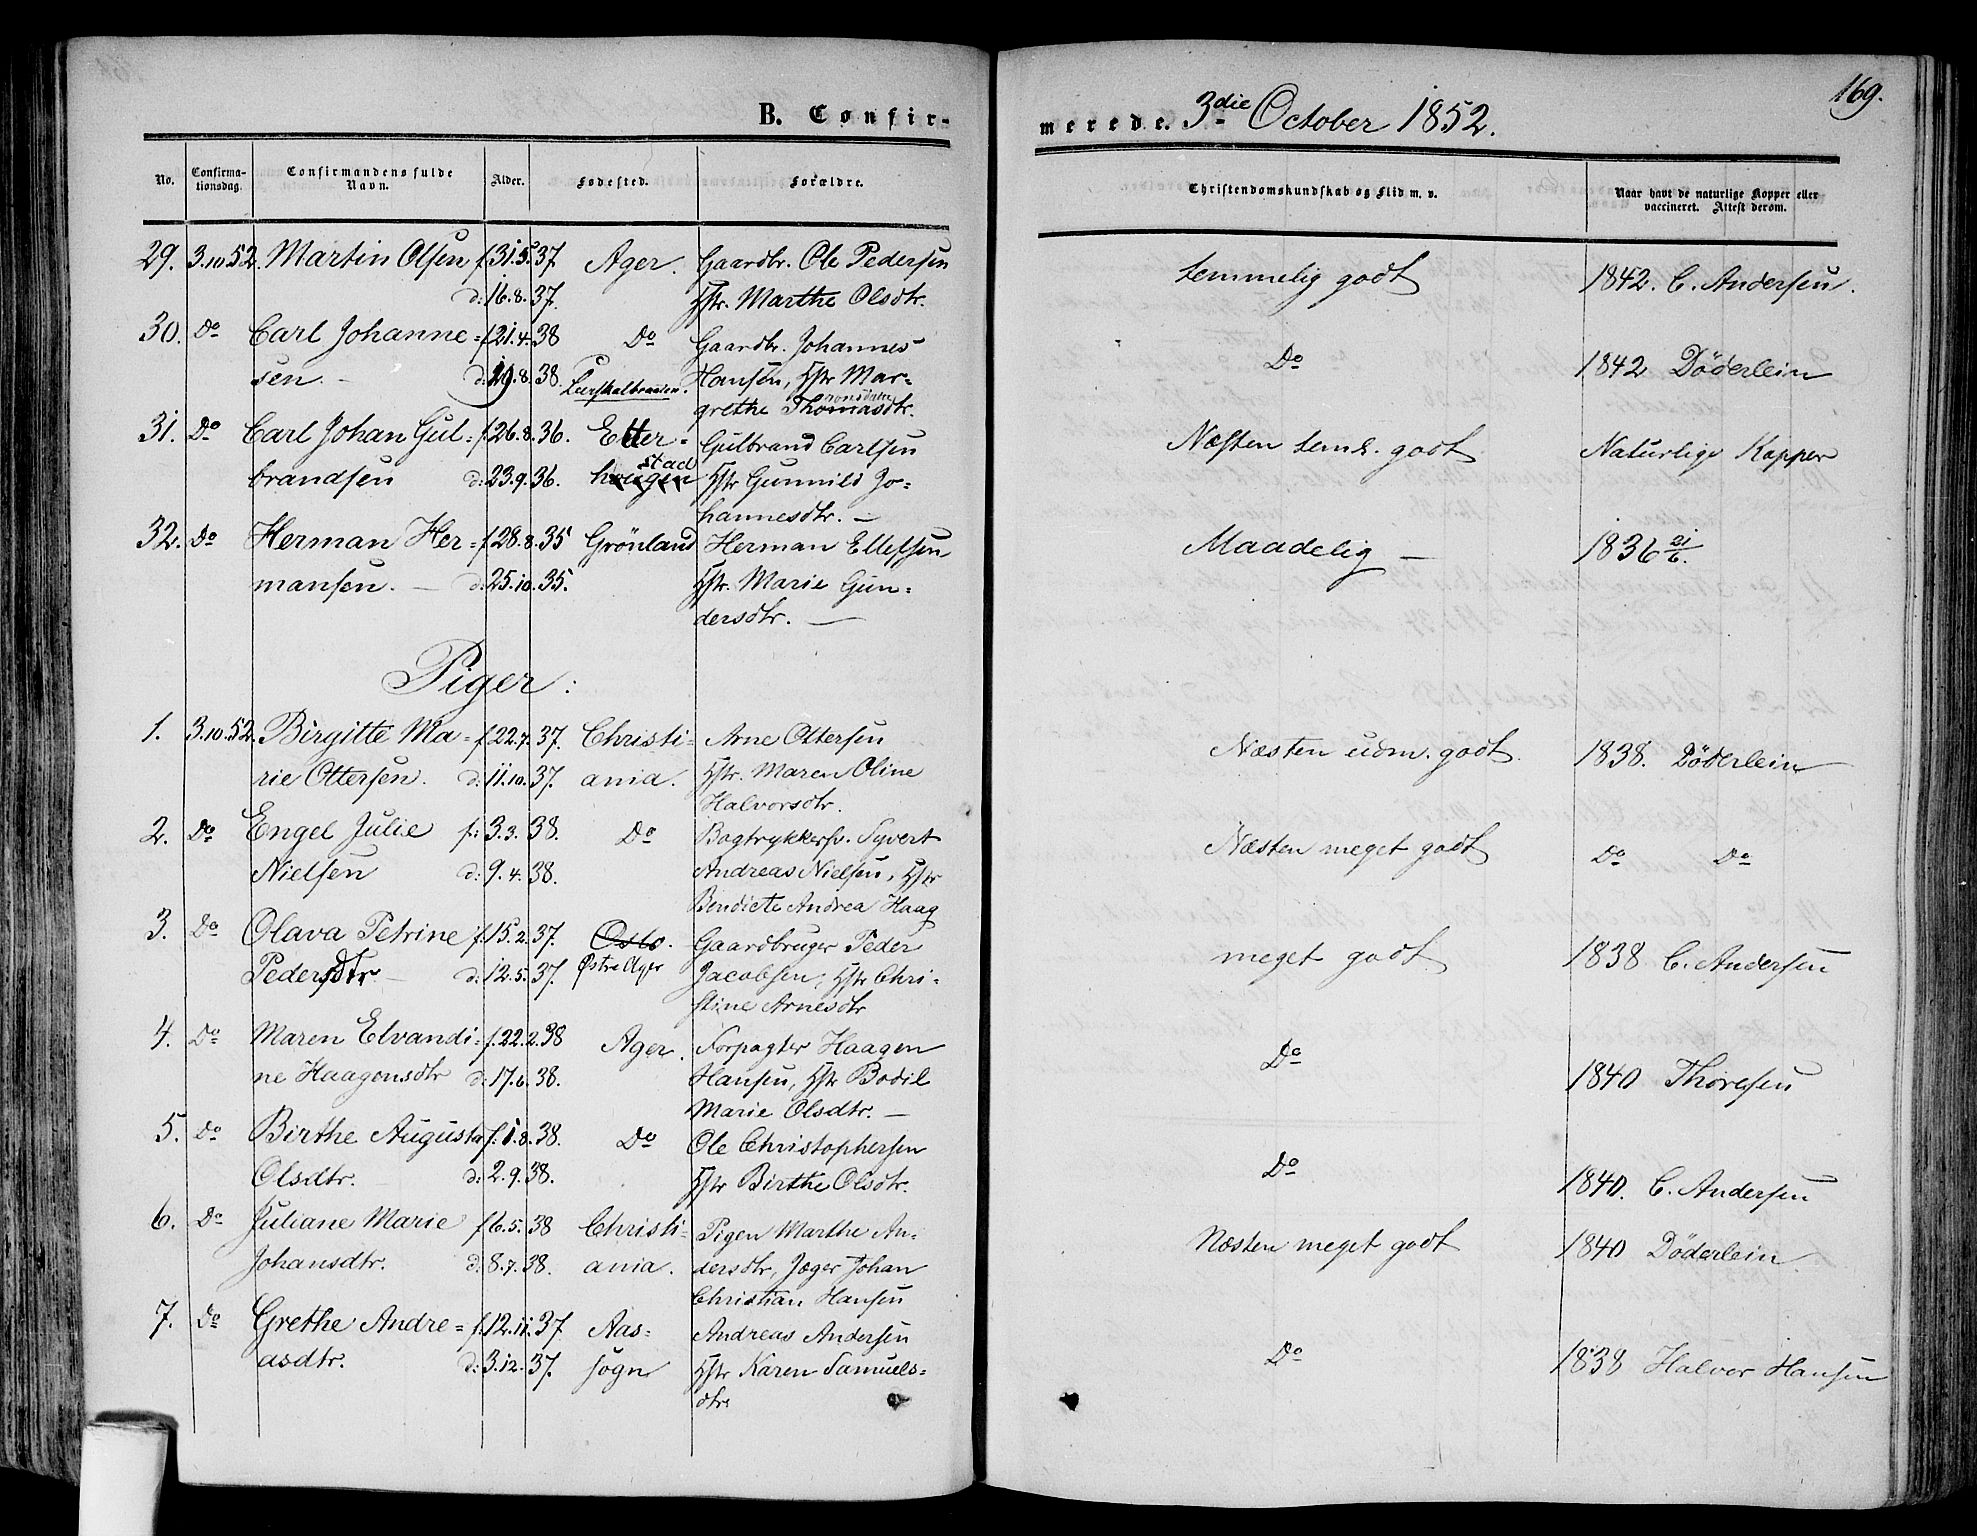 169.
B. Confirmerede. 3die October 1852.
No. Confirmationsdag. Confirmandens fulde Navn. Alder. Fødested. Forældre. Christendomskundskab og Flid m. v. Naar havt de naturlige Kopper eller vaccineret. Attest derom.
29. 3.10.52. Martin Olsen f. 31.5.37. Ager. Gaardbr. Ole Pedersen temmelig godt 1842. C. Andersen.
d: 16.8.37. Hstr. Marthe Olsdtr.
30. Do Carl Johanne= f. 21.4.38 Do Gaardbr. Johannes Do 1842 Döderlein
sen. d. 19.8.38. Hansen, Hstr Mar-
grethe Thomasdtr.
31. Do Carl Johan Gul= f. 26.8.36. Etter- Gulbrand Carlsen Næsten teml. godt Naturlige Kopper
brandsen d: 23.9.36. haugen stad Hstr Gunnild Jo-
hannesdtr. —
32. Do Herman Her= f. 28.8.35 Grönland Herman Ellefsen Maadelig — 1836 21/6.
mansen. — d: 25.10.35. Hstr. Marie Gun-
dersdtr. —
Piger:
1. 3.10.52. Birgitte Ma= f. 22.7.37. Christi- Arne Ottersen Næsten udm. godt 1838. Döderlein
rie Ottersen. d: 11.10.37. ania. Hstr. Maren Oline
Halvorsdtr.
2. Do Engel Julie f: 3.3.38. Do Bogtrykkersv. Syvert Næsten meget godt Do Do
Nielsen d: 9.4.38. Andreas Nielsen, Hstr
Bendicte Andrea Haag
3. Do Olava Petrine f. 15.2.37. Oslo. Gaardbruger Peder meget godt 1838 C. Andersen
Pedersdtr — d: 12.5.37. Østre Ager Jacobsen, Hstr Chri-
stine Arnesdtr
4. Do Maren Elvandi= f. 22.2.38 Ager. Forpagter Haagen Do 1840 Thoresen
ne Haagensdtr d: 17.6.38. Hansen, Hstr Bodil
Marie Olsdtr. —
5. Do Birthe Augusta f. 1.8.38. Do Ole Christophersen Do 1840. C. Andersen
Olsdtr. d: 2.9.38. Hstr Birthe Olsdtr.
6. Do Juliane Marie f. 6.5.38 Christi- Pigen Marthe An- Næsten meget godt 1840 Döderlein
Johansdtr. d: 8.7.38. ania. dersdtr, Jæger Johan
Christian Hansen
7. Do Grethe Andre= f. 12.11.37 Aas- Andreas Andersen Do 1838 Halvor Hansen
asdtr. d: 3.12.37. sogn Hstr Karen Samuels-
dtr.